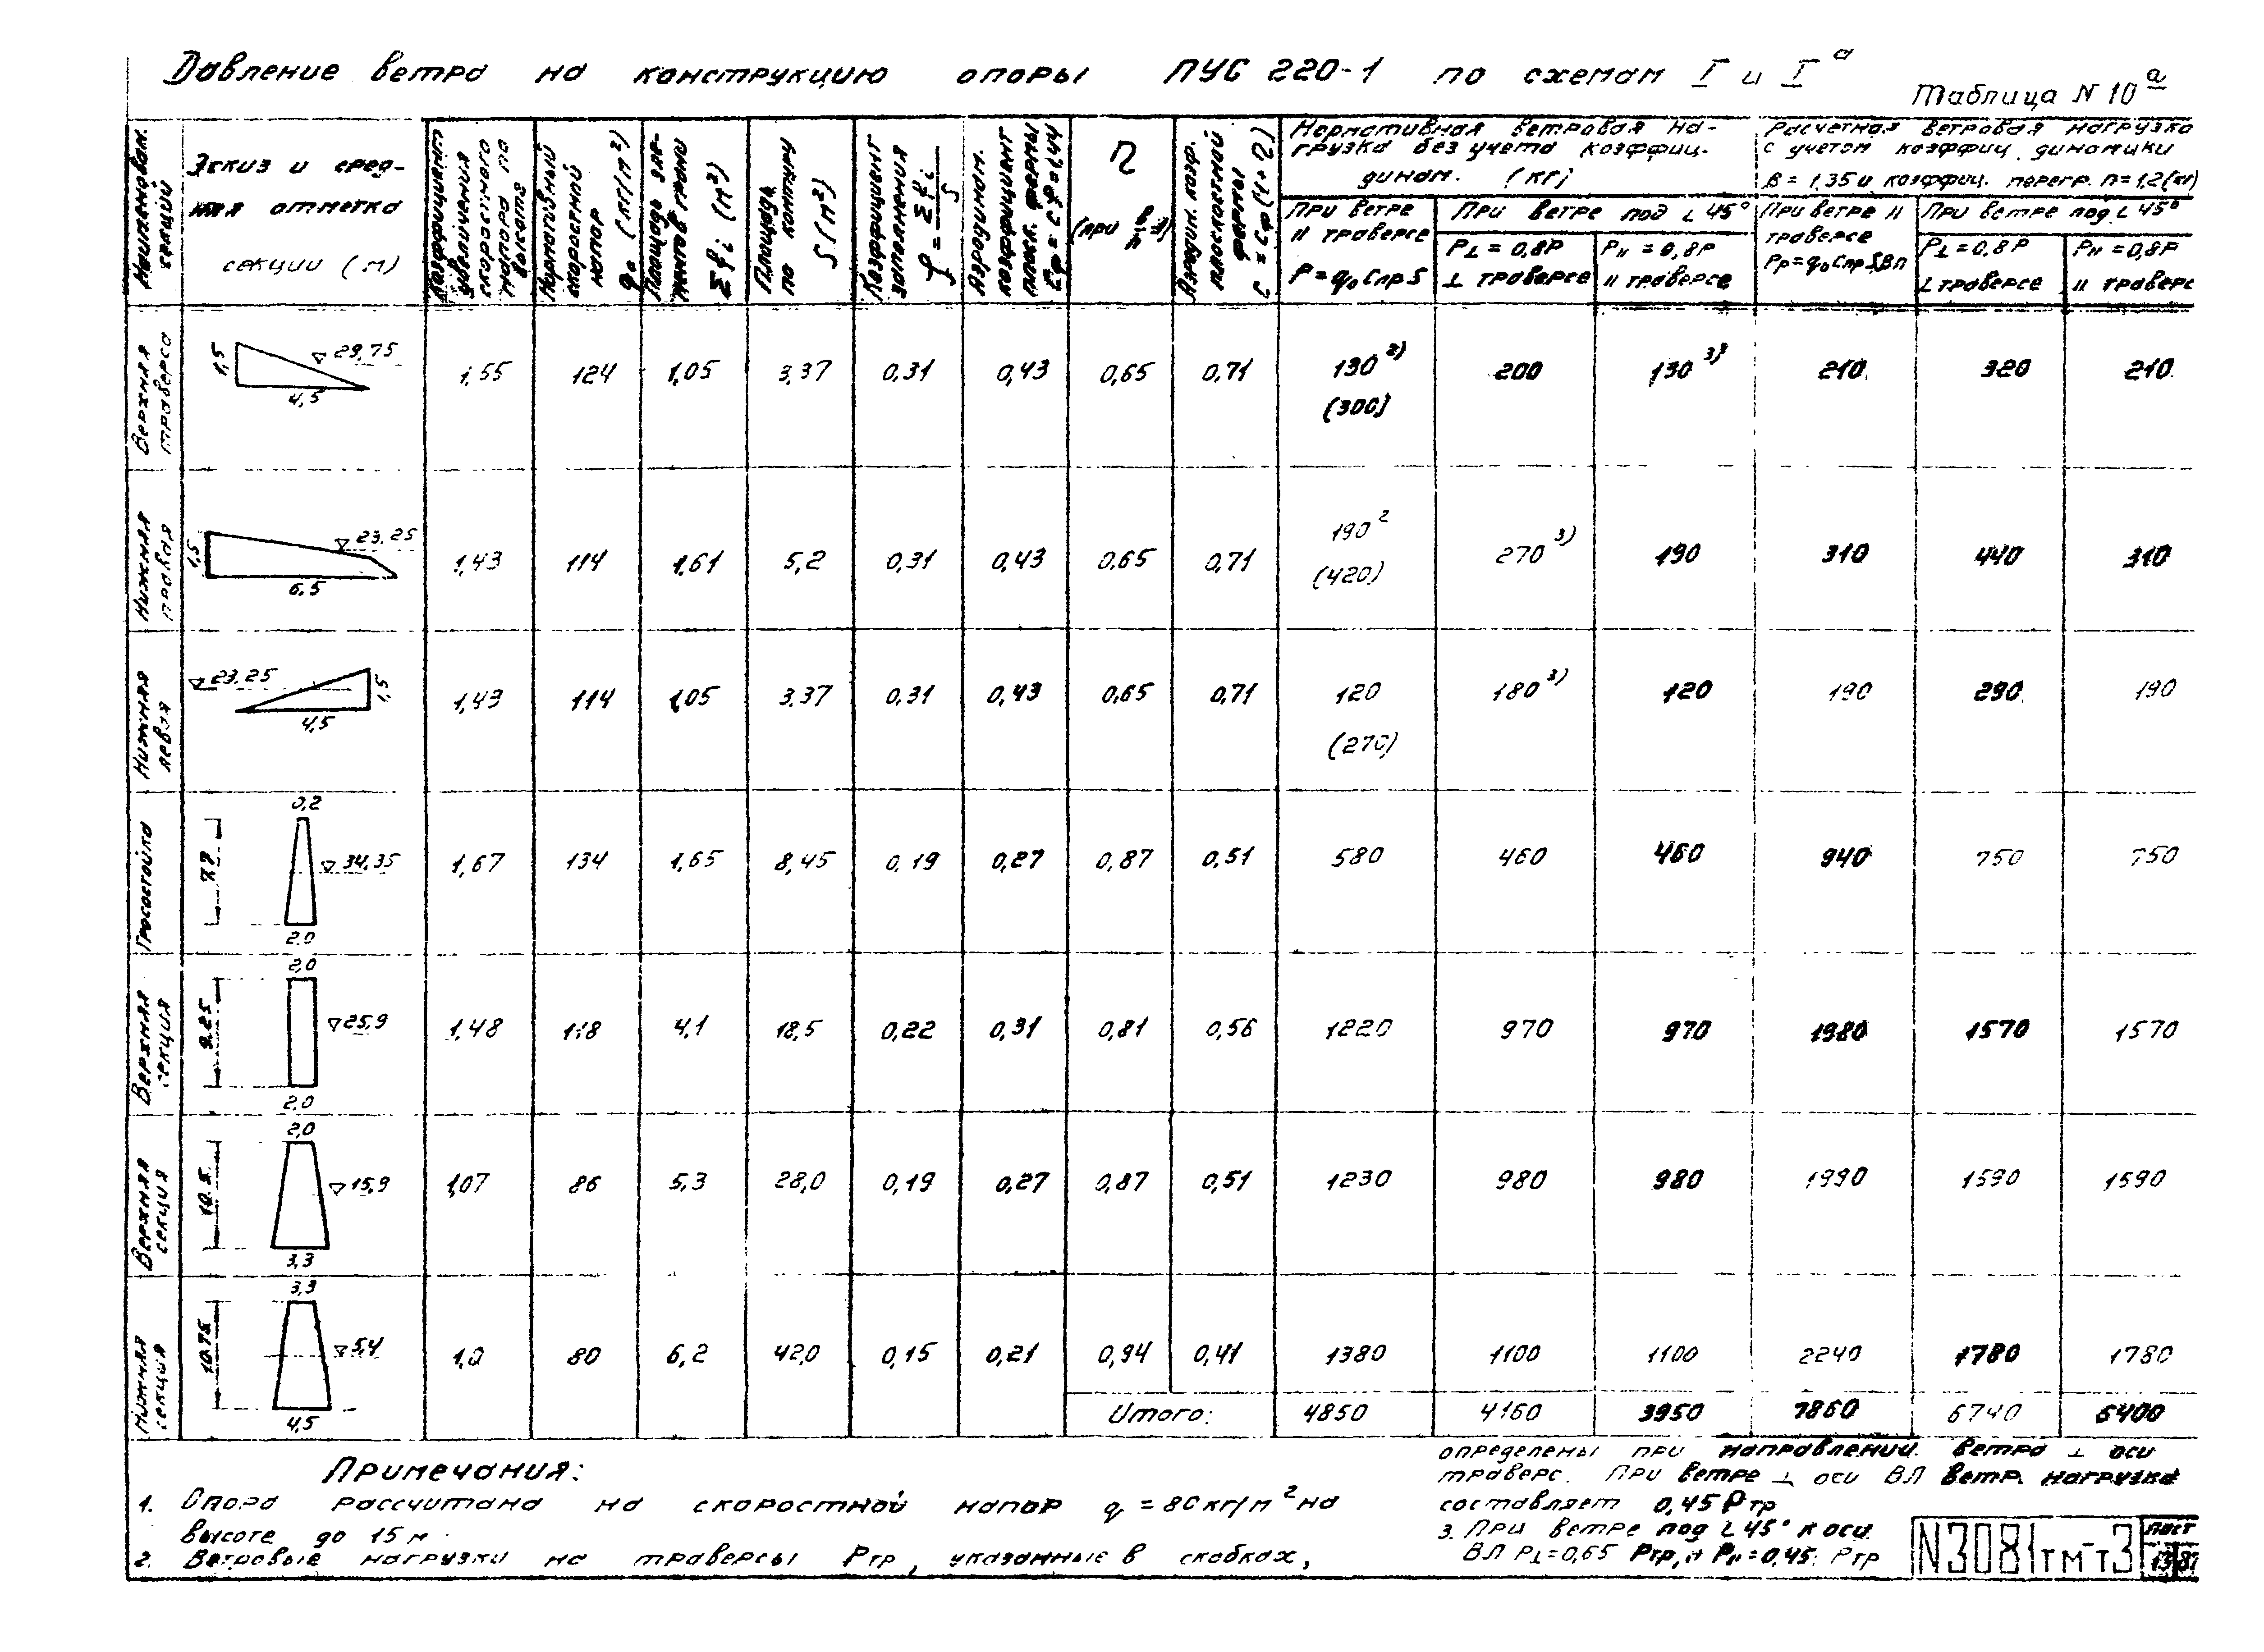 Давление ветра на конструкцию опоры ПУС 220-1 по схемам I и I а
Таблица N 10 а
Наименован. секций
Эскиз и сред-
няя отметка
секции (м)
Коэффициент увеличения скоростного напора по высоте
Нормативный скоростной напор q₀ (кг/м²)
Площадь эле-ментов грани Σfi (м²)
Площадь по контуру S (м²)
Коэффициент заполнения φ = Σfi / S
Аэродинам. коэффициент плоск. фермы Cφ = Cφ = 1,4φ
η (при в/h = 1)
Аэродин. коэф. плоскостной фермы C = Cφ(1+η)
Нормативная ветровая на-
грузка без учета коэффиц.
динам. (кг)
При ветре
II траверсе
P = q₀ Cпр S
При ветре под L 45°
P⊥ = 0,8P
⊥ траверсе
PII = 0,8P
II траверсе
Расчетная ветровая нагрузка
с учетом коэффиц. динамики
β = 1,35 и коэффиц. перегр. n = 1,2 (кг)
При ветре II
траверсе
Pp = q₀ Cпр S β n
При ветре под L 45°
P⊥ = 0,8P
⊥ траверсе
PII = 0,8P
II траверс
Верхняя траверса 1,5 29,75 4,5 1,55 124 1,05 3,37 0,31 0,43 0,65 0,71 130 2) (300) 200 130 3) 210 320 210
Нижняя правая 1,5 23,25 6,5 1,43 114 1,61 5,2 0,31 0,43 0,65 0,71 190 2 (420) 270 3) 190 310 440 310
Нижняя левая 23,25 1,5 4,5 1,43 114 1,05 3,37 0,31 0,43 0,65 0,71 120 (270) 180 3) 120 190 290 190
Тросостойка 0,2 7,7 34,35 2,0 1,67 134 1,65 8,45 0,19 0,27 0,87 0,51 580 460 460 940 750 750
Верхняя секция 2,0 9,25 25,9 2,0 1,48 118 4,1 18,5 0,22 0,31 0,81 0,56 1220 970 970 1980 1570 1570
Верхняя секция 2,0 10,5 15,9 3,3 1,07 86 5,3 28,0 0,19 0,27 0,87 0,51 1230 980 980 1990 1590 1590
Нижняя секция 3,3 10,75 5,4 4,5 1,0 80 6,2 42,0 0,15 0,21 0,94 0,41 1380 1100 1100 2240 1780 1780
Итого: 4850 4160 3950 7860 6740 6400
Примечания:
1. Опора рассчитана на скоростной напор q = 80 кг/м² на
высоте до 15 м.
2. Ветровые нагрузки на траверсы Pтр, указанные в скобках,
определены при направлении ветра ⊥ оси
траверс. При ветре ⊥ оси ВЛ ветр. нагрузка
составляет 0,45 Pтр
3. При ветре под L 45° к оси
ВЛ P⊥ = 0,65 Pтр, и PII = 0,45 Pтр
N3081тм-т3
лист